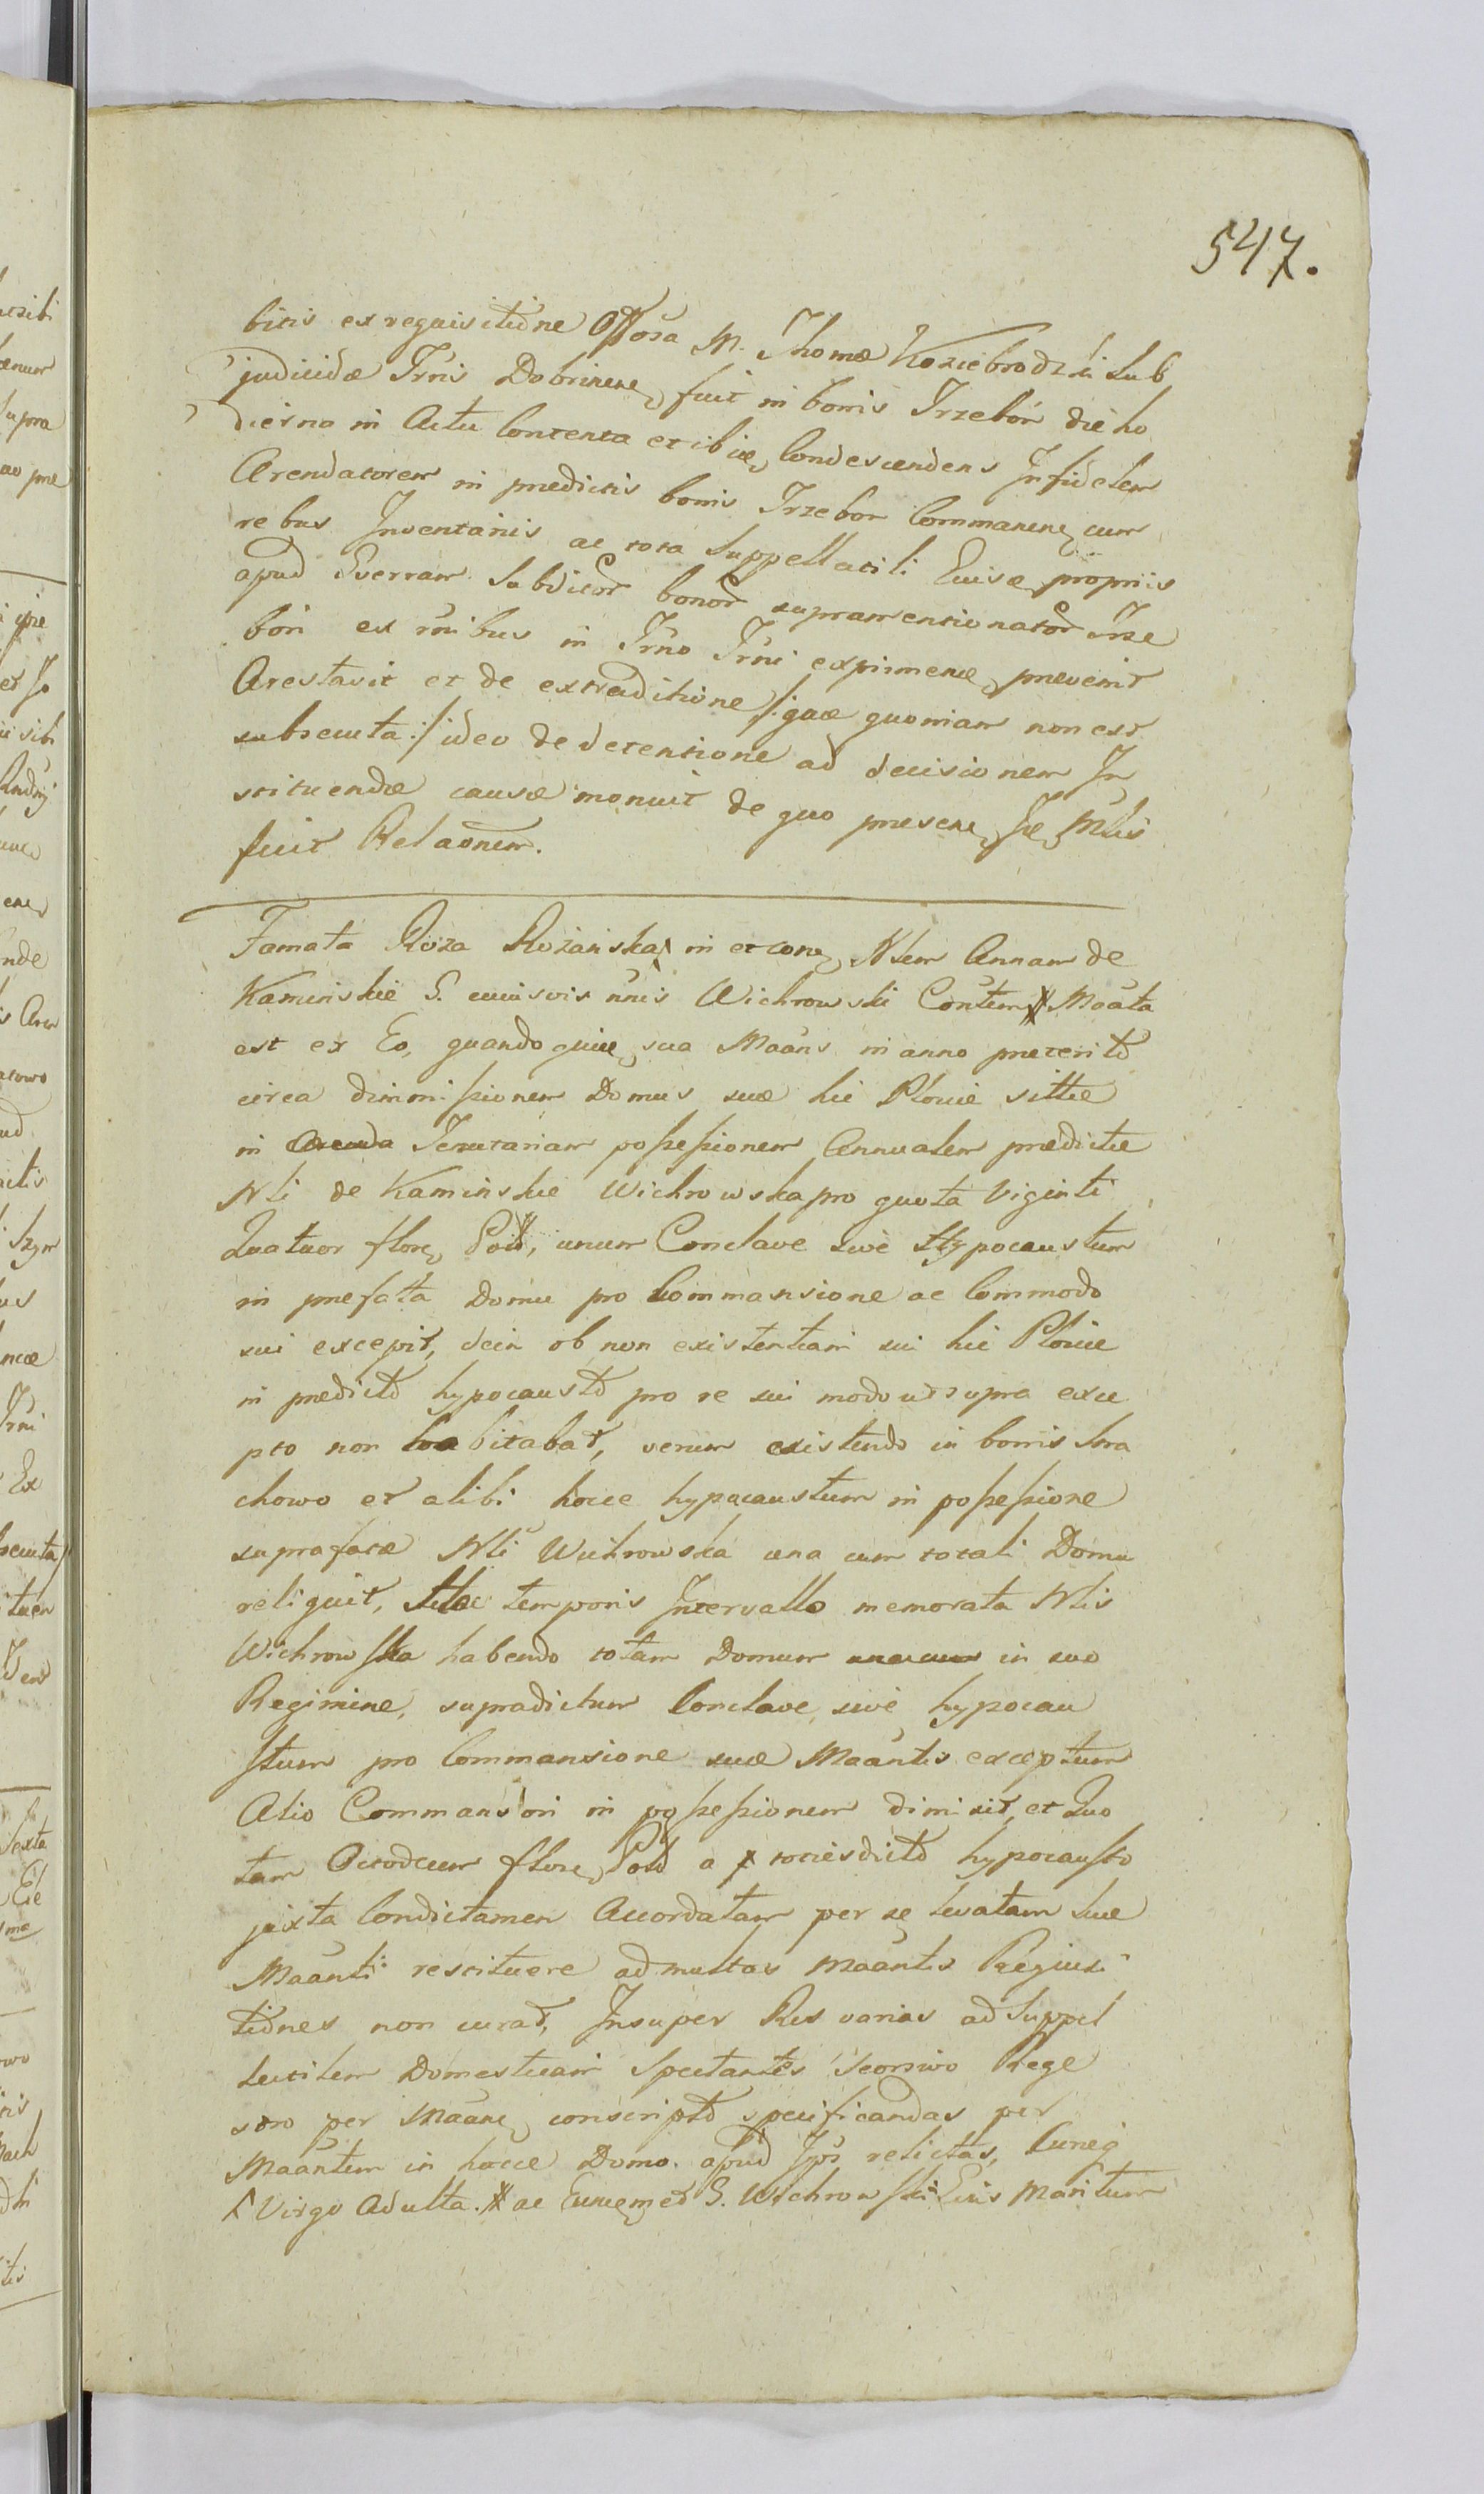 547.
bitis ex requisitiõne Offosa M. Thomæ Koziebrodzki Sub
judicidæ Trris Dobrinen, fuit in bonis Trzebon die ho
dierna in Actu Contenta et ibiq, Condescendens Infidelem
Arendatorem in prædictis bonis Trzebon Commanen, cum
rebus Inventariis ac tota Suppellactili Ejusq, propriis
apud Sverram Subditor bonor supramentionator Trze
bon ex rnibus in Trno Trni exprimene, prævenit
Arestavit et de extraditione /: quæ quoniam non est
subsecuta :/ ideo de detentione ad decisionem In
stituendæ causæ monuit de quo presens, Je, Mlis
fecit Relaõnem.
Famata Róza Rozańska in et cone, Nlem Annam de
Kaminskie G. cuiusvis nñis Wichrowski Cõntem Moãta
est ex Eo, quandoquid, sua Maãns in anno præterito
circa dimmissionem Domus suæ hic Plociæ sittæ
in Tenutariam possessionem Annualem prædictæ
Nli de Kaminskie Wichrowska pro quota Viginti
Quatuor flore, Pold, unum Conclave sive Hypocaustum
in prefata Domu pro Commansione ac Commodo
sui excepit, dein ob non existentiam sui hic Plociæ
in prædicto hypocausto pro re sui modo ut supra exce
pto non habitabat, verum existendo in bonis Sra
chowo et alibi hocce hypocaustum in possessione
suprafatæ Nli Wichrowska una cum totali Domu
reliquit, Hoc temporis Intervallo memorata Nlis
Wichrowska habendo totam Domum in suo
Regimine, supradictum Conclave sive hypocau
stum pro Commansione suæ Maãntis exceptum
Alio Commansori in possessionem dimisit, et Quo
tam Octodecem flore, Pold a totiesdicto hypocausto
juxta Condictamen Accordatam per se levatam Suæ
Maãnti restituere ad multas Maãntis Requisi
tiones non curat, Insuper Res varias ad Suppel
lectilem Domesticam Spectantes Seorsivo Rege
stro per Maãne, conscripto specificandas per
Maãntem in hacce Domo apud Jps relictas, Cuneg
Virgo Adulta. ac Eumemet G. Wichrowski Ejus Maritum